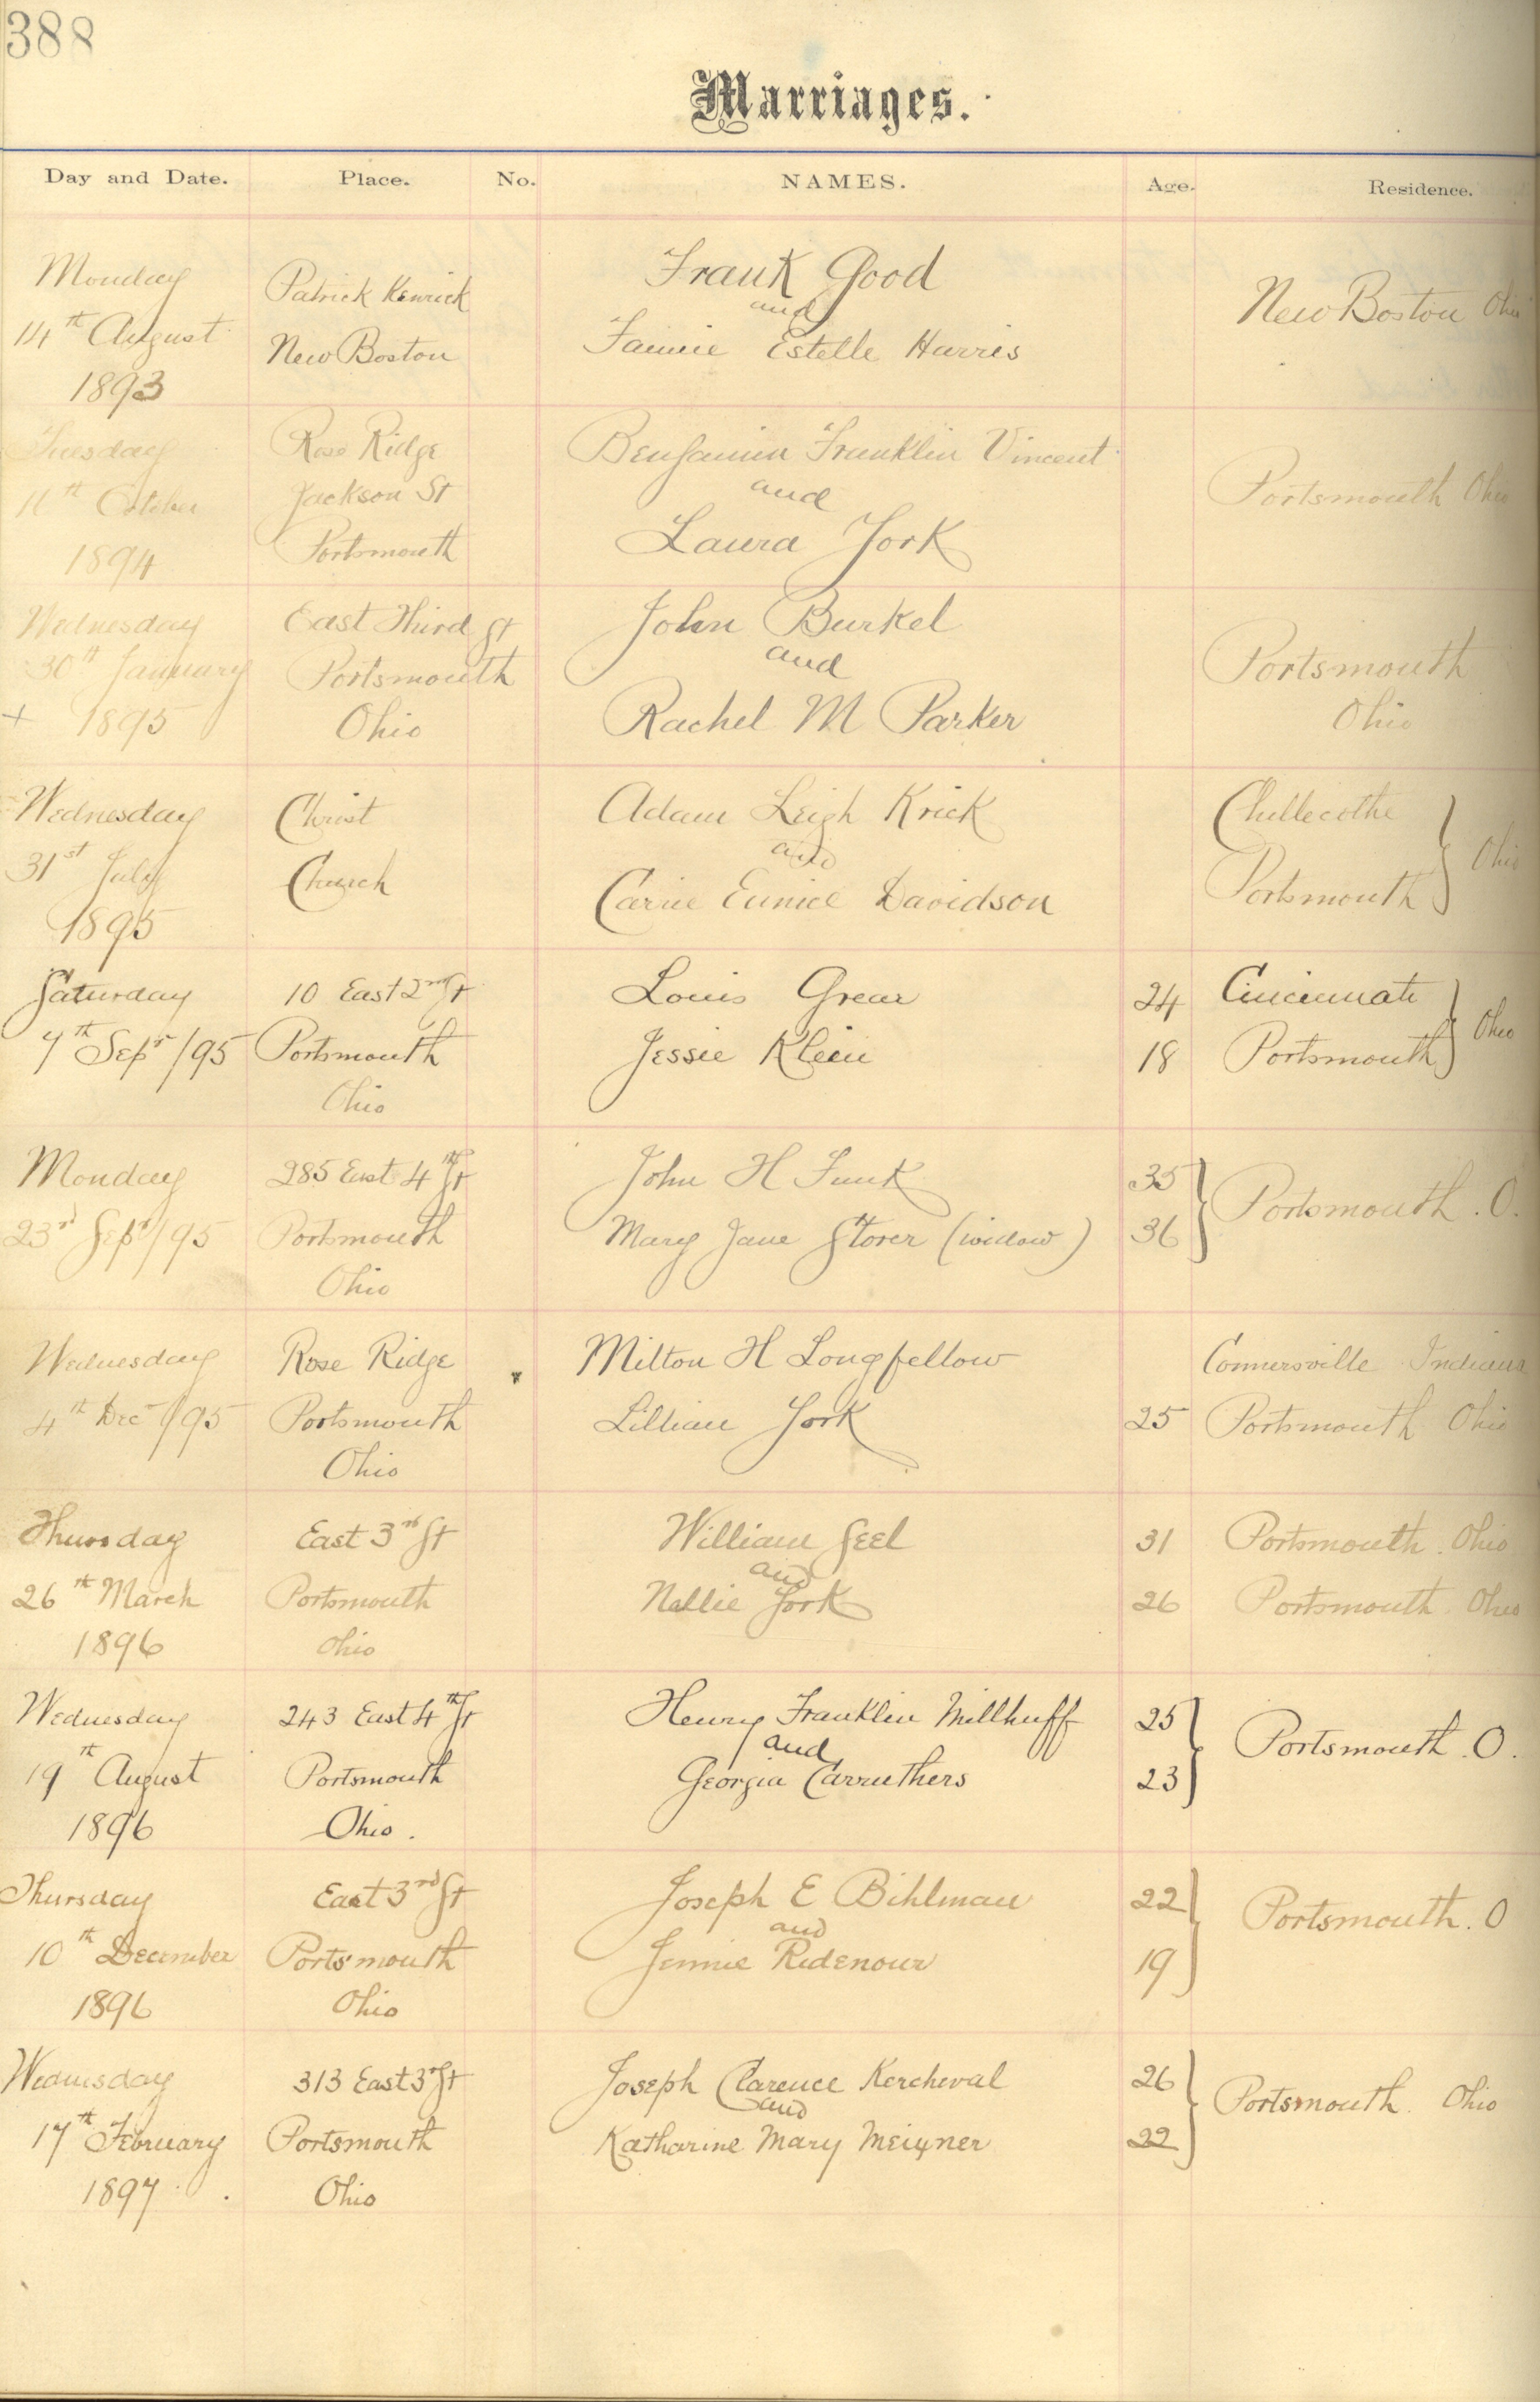 388
Marriages.
Day and Date. Place. No. NAMES. Age. Residence.
Monday
14th August
1893
Patrick Kenrick
New Boston
Frank Good
and
Fannie Estelle Harris
New Boston Ohio
Tuesday
October
1894
Rose Ridge
Jackson St
Portsmouth
Benjamin Franklin Vincent
and
Laura York
Portsmouth Ohio
Wednesday
30th January
+ 1895
East Third St
Portsmouth
Ohio
John Burkel
and
Rachel M Parker
Portsmouth
Ohio
Wednesday
31st July
1895
Christ
Church
Adam Leigh Krick
and
Carrie Eunice Davidson
Chillecothe
Portsmouth } Ohio
Saturday
7th Sepr /95
10 East 2nd St
Portsmouth
Ohio
Louis Grear
Jessie Klein
24
18
Cincinnati
Portsmouth } Ohio
Monday
23rd Sept /95
285 East 4th St
Portsmouth
Ohio
John H Funk
Mary Jane Storer (widow)
35
36
} Portsmouth . O.
Wednesday
4th Dec /95
Rose Ridge
Portsmouth
Ohio
Milton H Longfellow
Lillian York
25
Connersville Indiana
Portsmouth Ohio
Thursday
26th March
1896
East 3rd St
Portsmouth
Ohio
William Geel
and
Nellie York
31
26
Portsmouth . Ohio
Portsmouth . Ohio
Wednesday
19th August
1896
243 East 4th St
Portsmouth
Ohio .
Henry Franklin Millhuff
and
Georgia Carruthers
25
23
} Portsmouth . O.
Thursday
10th December
1896
East 3rd St
Portsmouth
Ohio
Joseph E Bihlman
and
Jennie Ridenour
22
19
} Portsmouth . O
Wednesday
17th February
1897
313 East 3rd St
Portsmouth
Ohio
Joseph Clarence Kercheval
and
Katharine Mary Meixner
26
22
} Portsmouth . Ohio